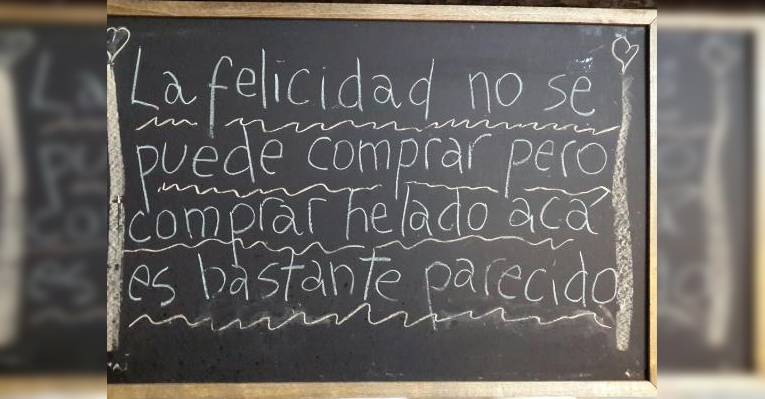 La felicidad no se
puede comprar pero
comprar helado acá
es bastante parecido